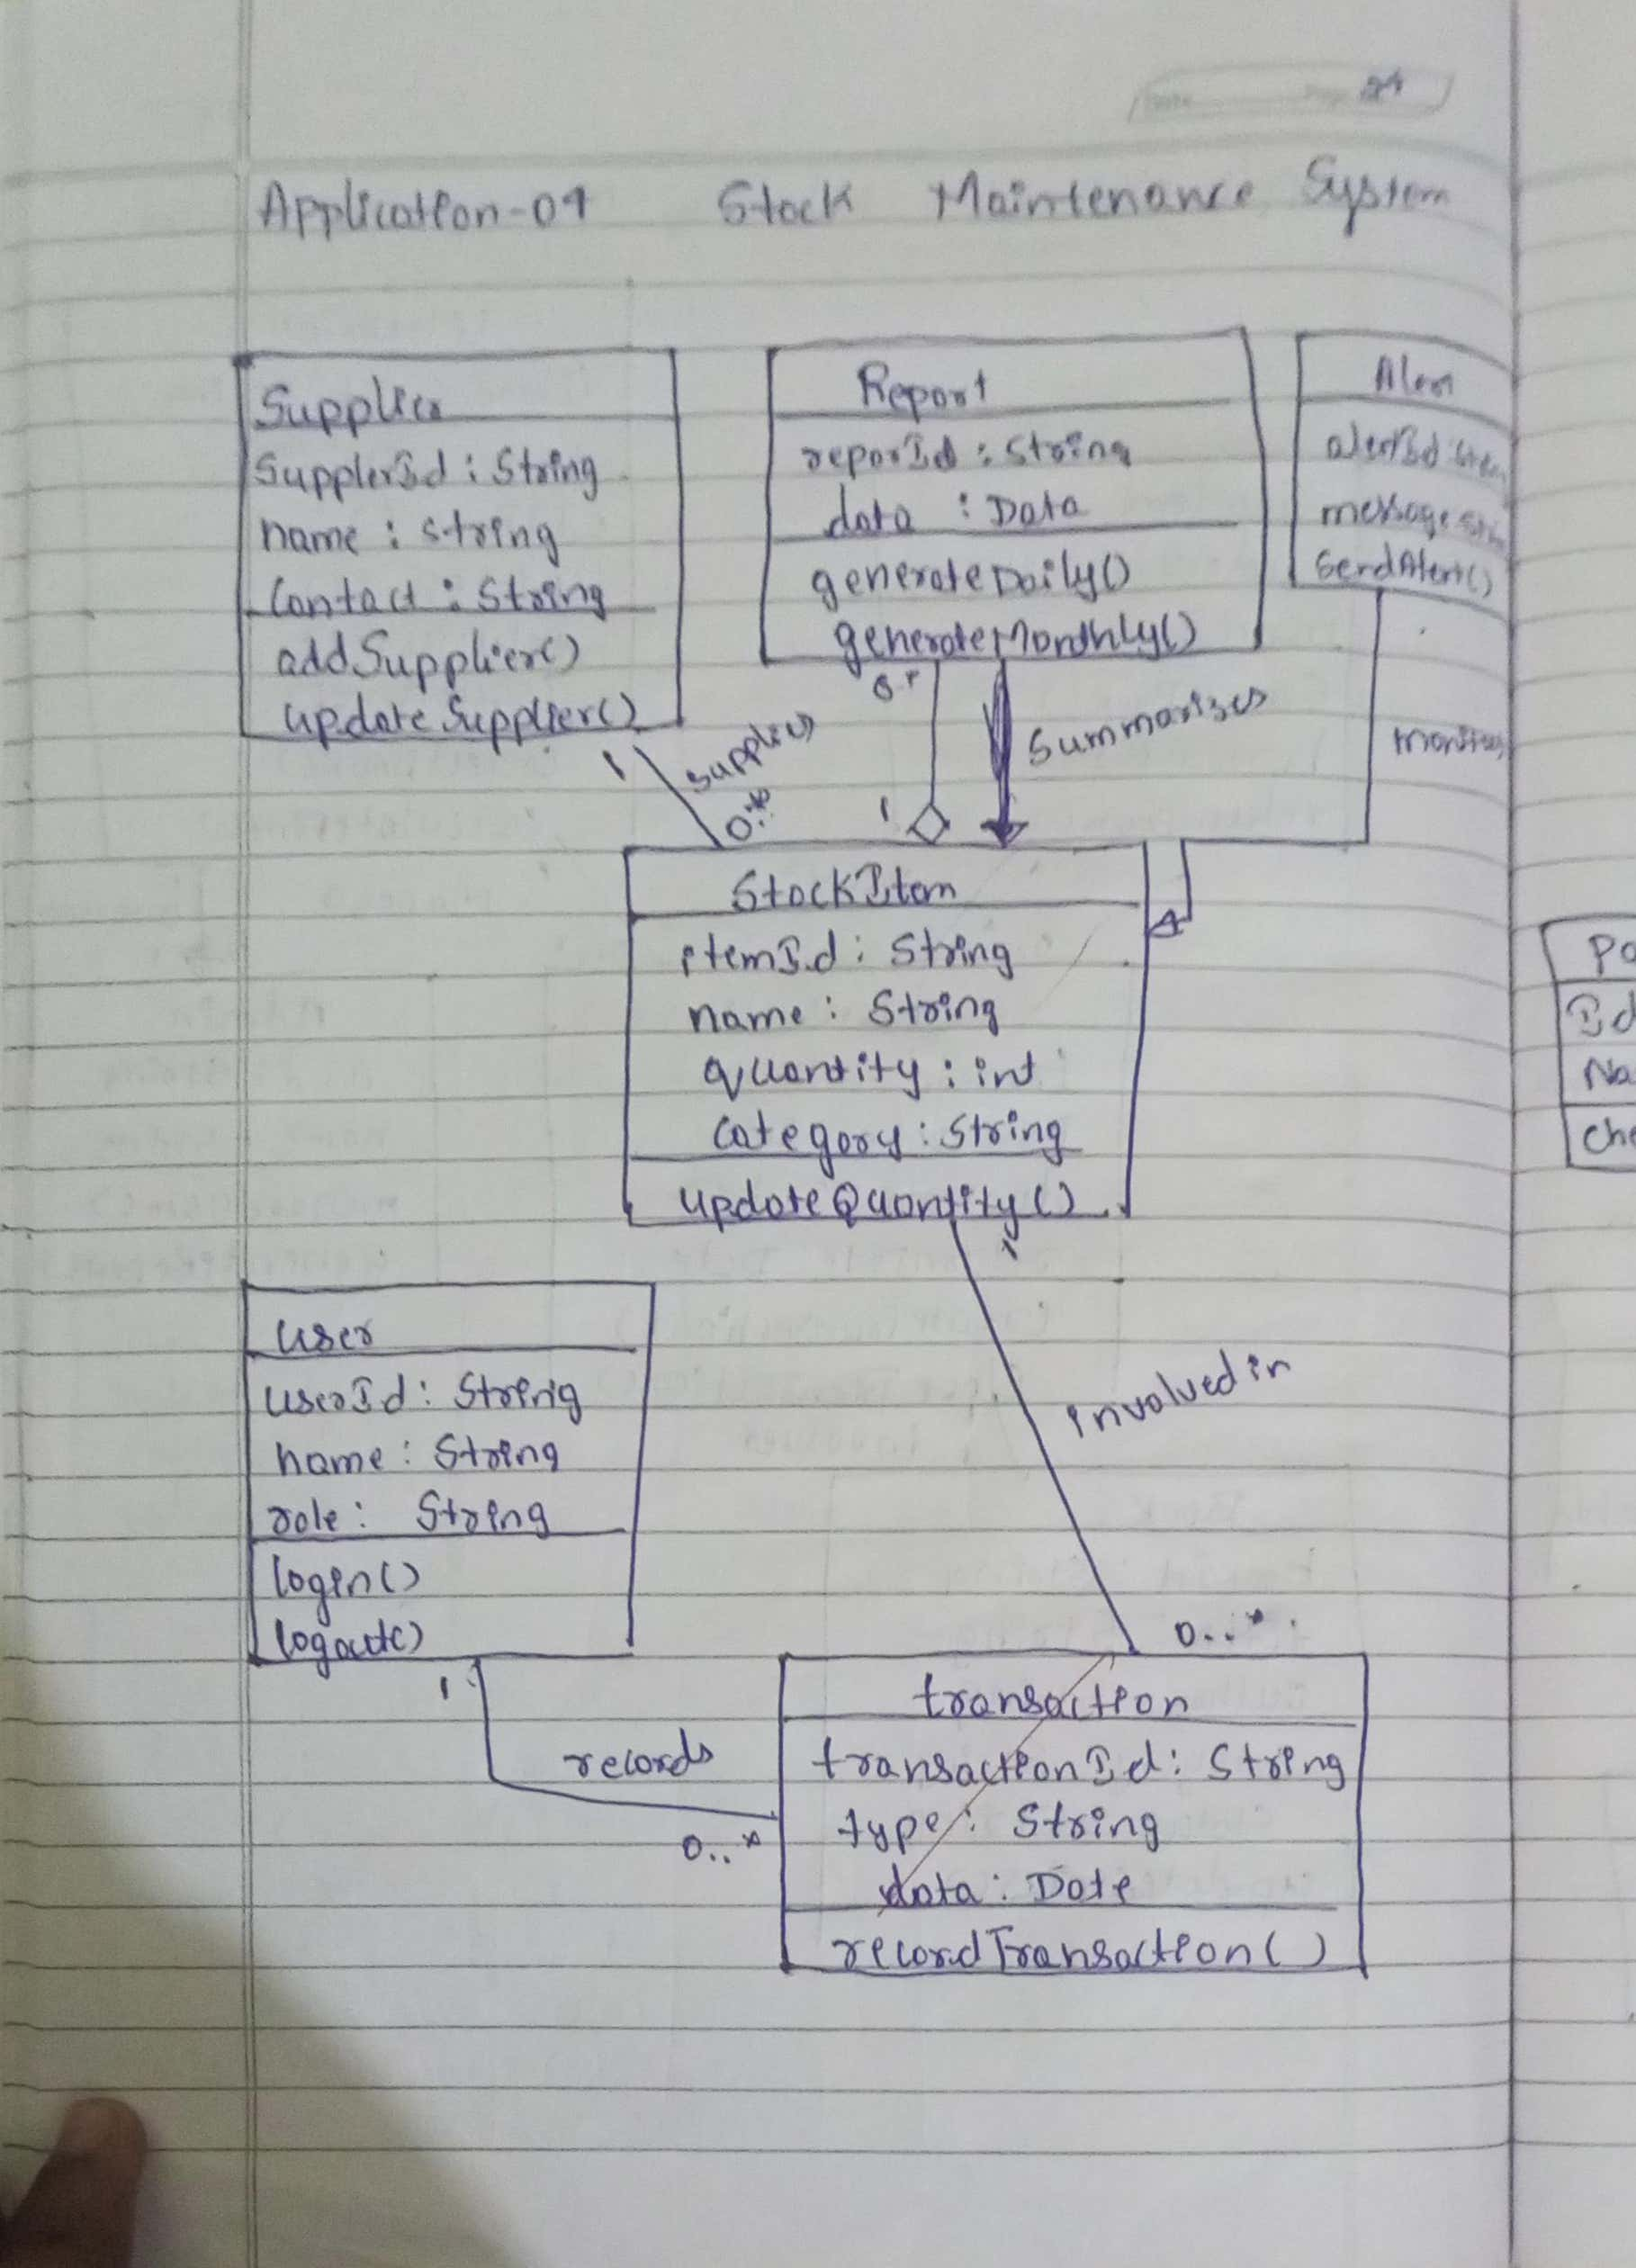 24
Application-04 Stock Maintenance System
Supplier
SupplerId : String
name : String
Contact : String
addSupplier()
updateSupplier()
Report
reporId : String
data : Data
generateDaily()
generateMonthly()
Alert
alertId
message
SendAlert()
1
supplies
0..*
1
Summarizes
StockItem
itemId : String
name : String
quantity : int
category : String
updateQuantity()
1
involved in
0..*
User
userId : String
name : String
role : String
login()
logout()
1
records
0..*
transaction
transactionId : String
type : String
data : Date
recordTransaction()
Id